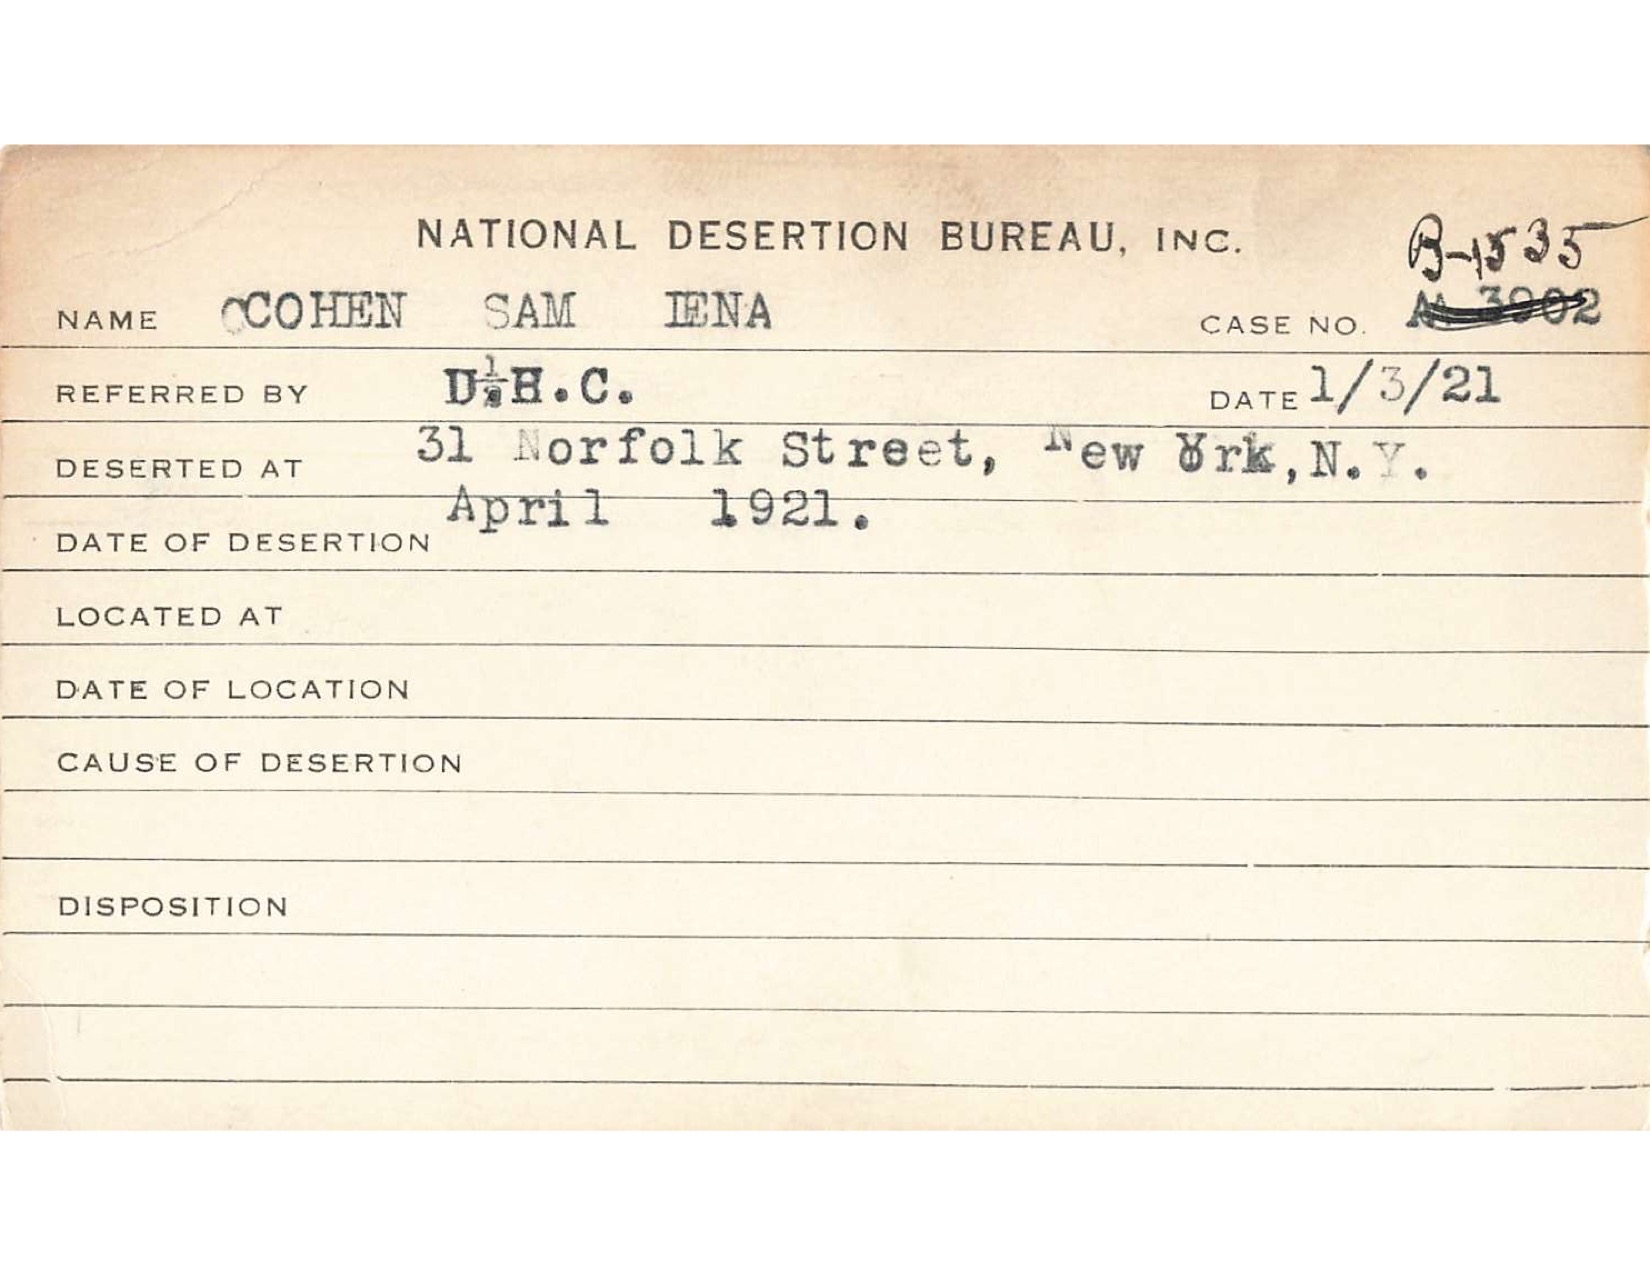 NATIONAL DESERTION BUREAU, INC.
B-1535
NAME COHEN SAM LENA CASE NO. 3902
REFERRED BY U.H.C. DATE 1/3/21
DESERTED AT 31 Norfolk Street, New York, N.Y.
DATE OF DESERTION April 1921.
LOCATED AT
DATE OF LOCATION
CAUSE OF DESERTION
DISPOSITION